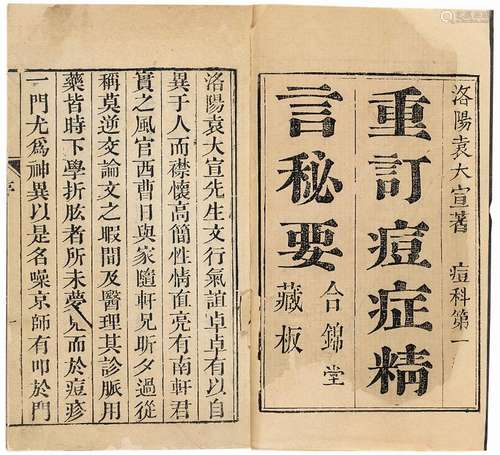 洛陽袁大宣著 痘科第一
重訂痘症精
言秘要
合錦堂
藏板
洛陽袁大宣先生文行氣誼卓卓有以自
異于人而襟懷高簡性情直亮有南軒君
實之風官西曹日與家隨軒兄昕夕過從
稱莫逆交論文之暇間及醫理其診脈用
藥皆時下學折肱者所未夢見而於痘疹
一門尤爲神異以是名噪京師有叩於門
序